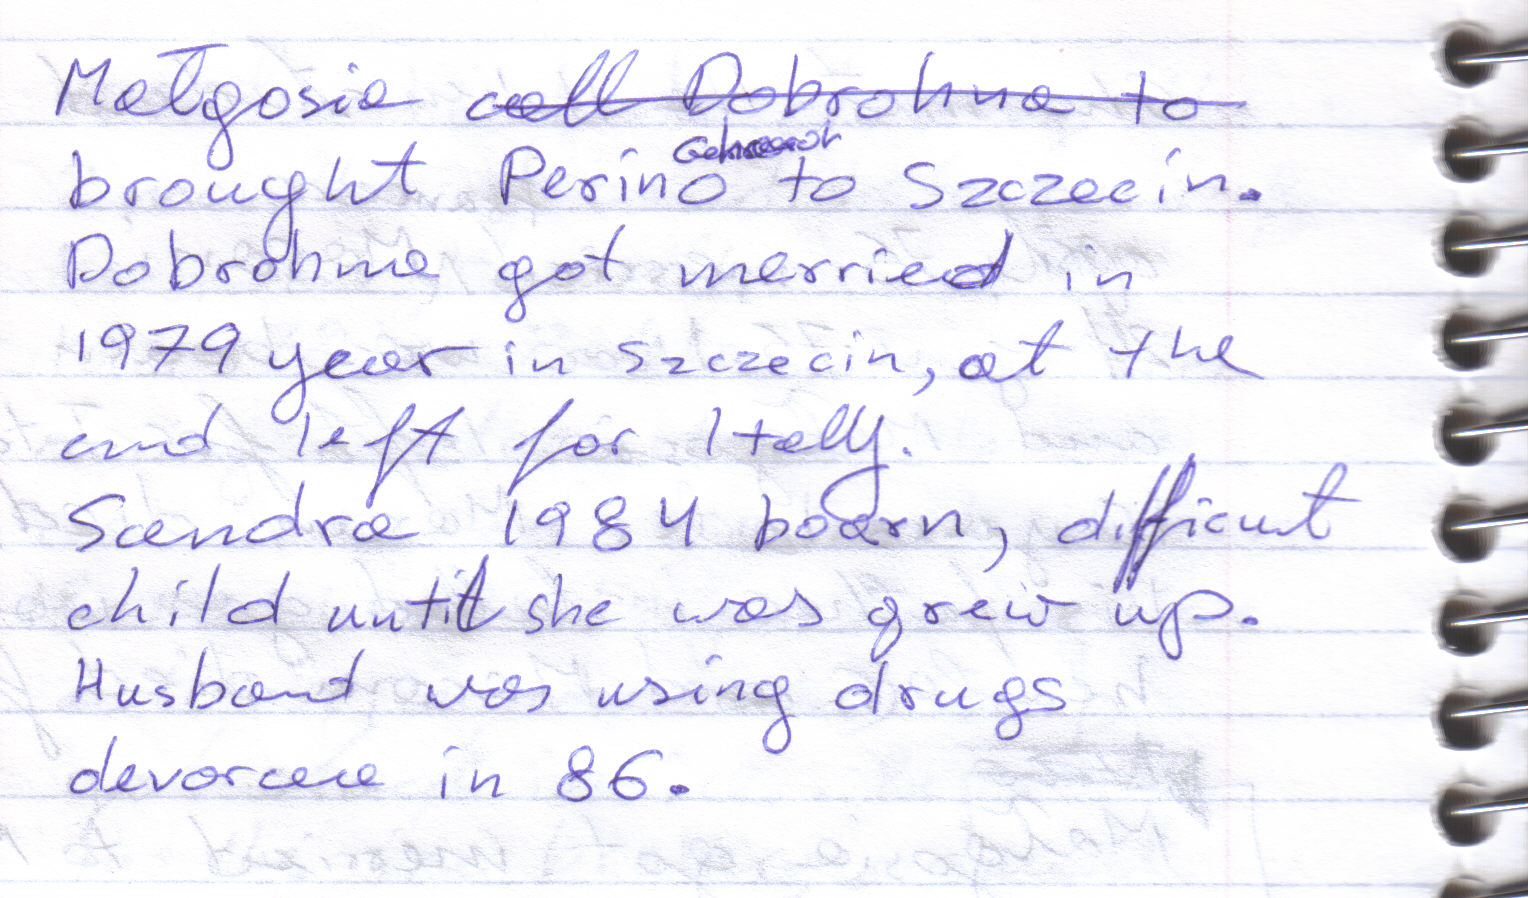 Małgosia call Dobrohna to
brought Perino to Szczecin.
Dobrohna got merried in
1979 year in Szczecin, at the
end left for Itally.
Sandra 1984 boarn, difficult
child until she was grew up.
Husband was using drugs
devorce in 86.